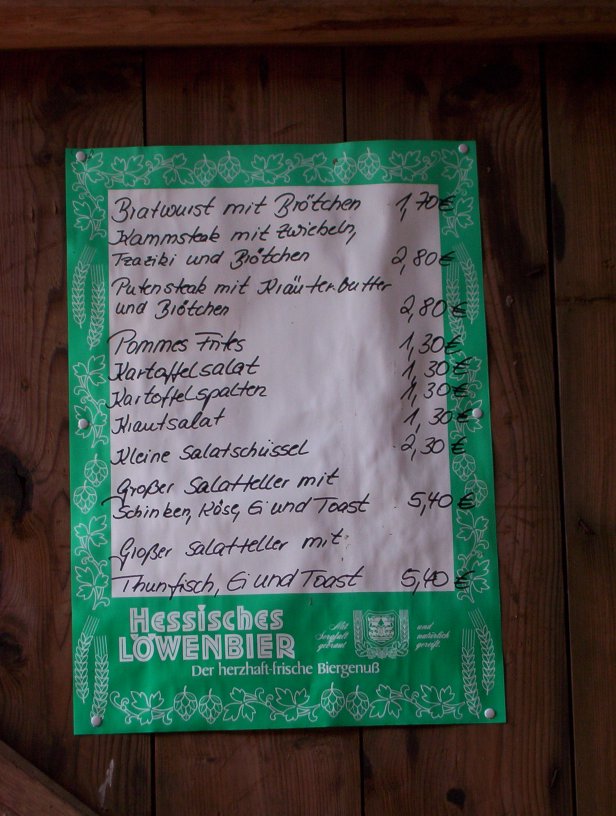 Bratwurst mit Brötchen 1,70€
Kammsteak mit Zwiebeln,
Tzaziki und Brötchen 2,80€
Putensteak mit Kräuterbutter
und Brötchen 2,80€
Pommes Frites 1,30€
Kartoffelsalat 1,30€
Kartoffelspalten 1,30€
Krautsalat 1,30€
Kleine Salatschüssel 2,30€
Großer Salatteller mit
Schinken, Käse, Ei und Toast 5,40€
Großer Salatteller mit
Thunfisch, Ei und Toast 5,40€
Hessisches
LÖWENBIER
Der herzhaft-frische Biergenuß
Mit
Sorgfalt
gebraut
und
natürlich
gereift.